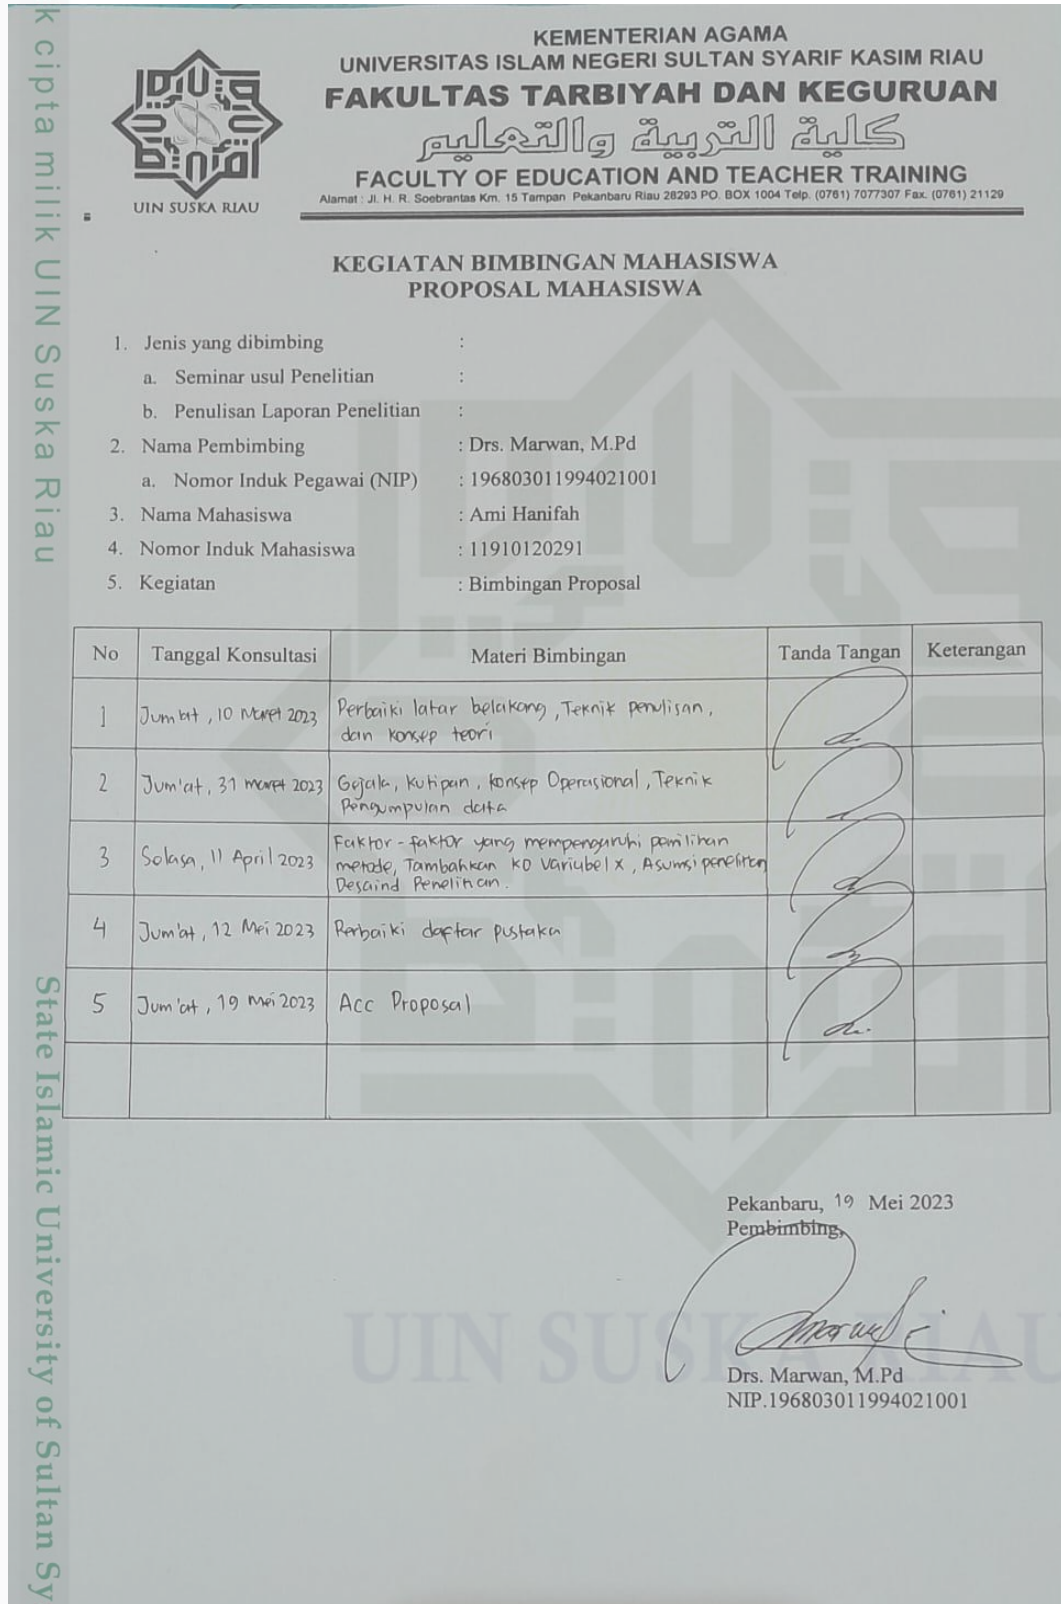 k cipta milik UIN Suska Riau
State Islamic University of Sultan Sy
UIN SUSKA RIAU
KEMENTERIAN AGAMA
UNIVERSITAS ISLAM NEGERI SULTAN SYARIF KASIM RIAU
FAKULTAS TARBIYAH DAN KEGURUAN
كلية التربية والتعليم
FACULTY OF EDUCATION AND TEACHER TRAINING
Alamat : Jl. H. R. Soebrantas Km. 15 Tampan Pekanbaru Riau 28293 PO. BOX 1004 Telp. (0761) 7077307 Fax. (0761) 21129
KEGIATAN BIMBINGAN MAHASISWA
PROPOSAL MAHASISWA
1. Jenis yang dibimbing :
a. Seminar usul Penelitian :
b. Penulisan Laporan Penelitian :
2. Nama Pembimbing : Drs. Marwan, M.Pd
a. Nomor Induk Pegawai (NIP) : 196803011994021001
3. Nama Mahasiswa : Ami Hanifah
4. Nomor Induk Mahasiswa : 11910120291
5. Kegiatan : Bimbingan Proposal
No Tanggal Konsultasi Materi Bimbingan Tanda Tangan Keterangan
1 Jum'at, 10 Maret 2023 Perbaiki latar belakang, Teknik penulisan,
dan konsep teori
2 Jum'at, 31 maret 2023 Gejala, kutipan, konsep Operasional, Teknik
Pengumpulan data
3 Selasa, 11 April 2023 Faktor-faktor yang mempengaruhi pemilihan
metode, Tambahkan KO Variabel X, Asumsi penelitian
Desaind Penelitian.
4 Jum'at, 12 Mei 2023 Perbaiki daftar pustaka
5 Jum'at, 19 Mei 2023 Acc Proposal
Pekanbaru, 19 Mei 2023
Pembimbing,
UIN SUSKA RIAU
Drs. Marwan, M.Pd
NIP.196803011994021001